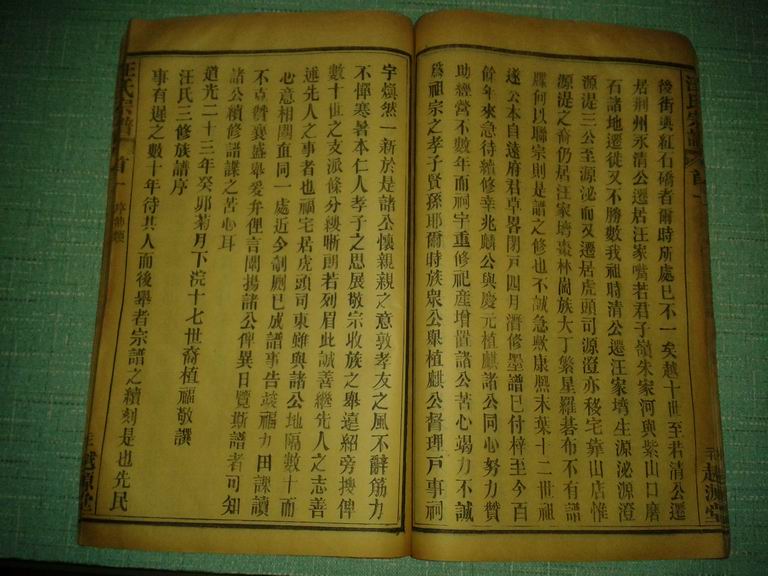 後街與紅石礄者爾時所處已不一矣越十世至若清公遷
居荆州永清公遷居汪家嘴若君子嶺朱家河與紫山口磨
石諸地遷徙又不勝數我祖時清公遷汪家塆生源泌源澄
源湜三公至源泌而又遷居虎頭司源澄亦移宅靠山店惟
源湜之裔仍居汪家塆棗林崗族大丁繁星羅碁布不有譜
牒何以聯宗則是譜之修也不誠急歟康熙末葉十二世祖
遂公本自遠府君草畧閉戸四月潛修墨譜已付梓至今百
餘年來急待續修幸兆麟公與慶元植麒諸公同心努力贊
助經營不數年而祠宇重修祀産增置諸公苦心竭力不誠
爲祖宗之孝子賢孫耶爾時族衆公舉植麒公督理戸事祠
宇煥然一新於是諸公懷親親之意敦孝友之風不辭筋力
不憚寒暑本仁人孝子之思展敬宗收族之舉遠紹旁搜俾
數十世之支派條分縷晰朗若列眉此誠善繼先人之志善
述先人之事者也福宅居虎頭司東雖與諸公地隔數十而
心意相關直同一處近今剞劂已成譜事告竣福力田課讀
不克贊襄盛舉爰弁俚言闡揚諸公俾異日覽斯譜者可知
諸公續修譜諜之苦心耳
道光二十三年癸卯菊月下浣十七世裔植福敬譔
汪氏三修族譜序
事有遲之數十年待其人而後舉者宗譜之續刻是也先民
汪氏宗譜
首一
越源堂